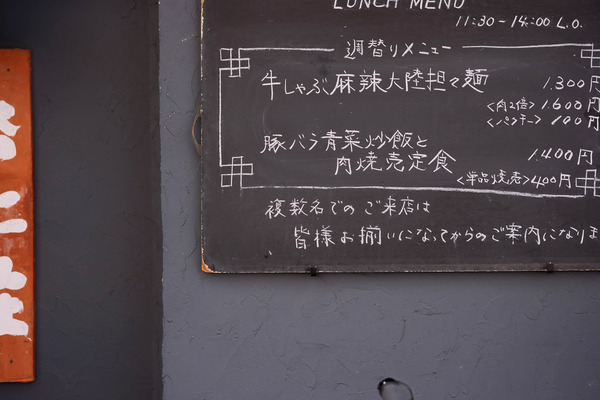 LUNCH MENU
11:30-14:00 L.O.
週替りメニュー
牛しゃぶ麻辣大陸担々麺 1.300円
<肉2倍> 1.600円
<パクチー> 100円
豚バラ青菜炒飯と
肉焼売定食 1.400円
<単品焼売> 400円
複数名でのご来店は
皆様お揃いになってからのご案内になりま